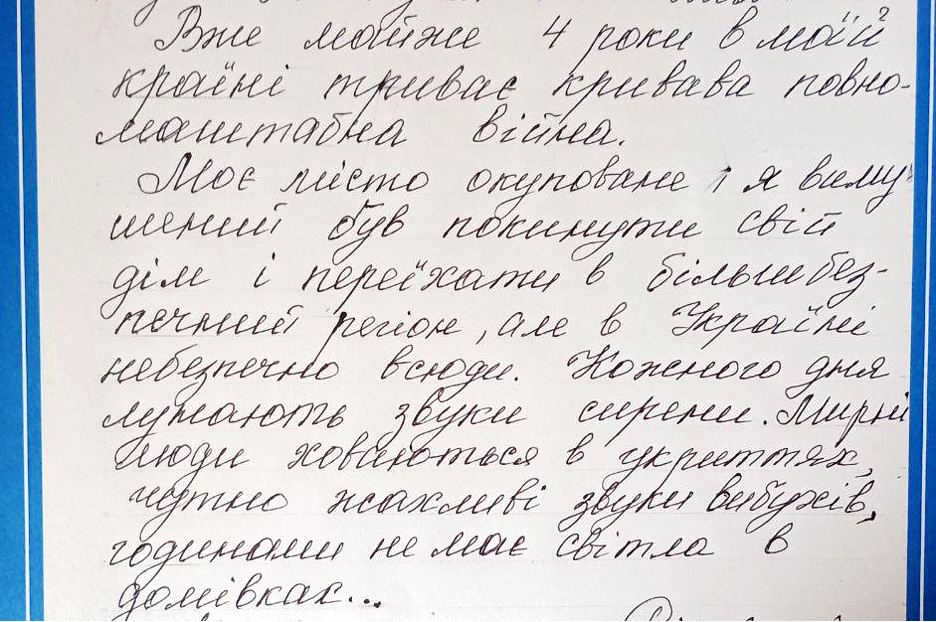 Вже майже 4 роки в моїй
країні триває кривава повно-
масштабна війна.
Моє місто окуповане і я виму
шений був покинути свій
дім і переїхати в більш без-
печний регіон, але в Україні
небезпечно всюди. Кожного дня
лунають звуки сирени. Мирні
люди ховаються в укриттях,
чутно жахливі звуки вибухів,
годинами не має світла в
домівках...